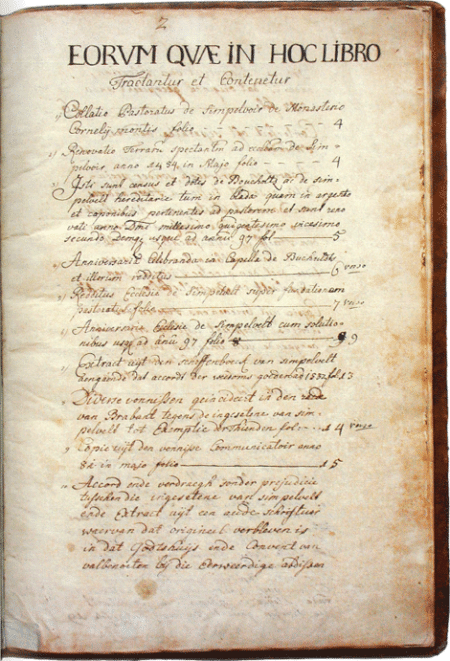 2
EORVM QVÆ IN HOC LIBRO
Tractantur et Contenetur
Collatio Pastoratus de Simpelvoir de Monasterio
Cornely montis folio - - - 4
2/ Renovatio Terrarum spectantm ad
pelvoir anno 1484, in Majo folio - - - 4
3/ Isti sunt census et dotes de Boucholts ac de sim-
pelvelt hereditarie tum in blada quam in argento
et caponibus pertinentes ad pastorem et sunt reno
vati anno Dni millesimo quadragentesimo vicesimo
secundo Denuo usque ad annu 97 fol 5
4/ Anniversaria Celebranda in Capella de Bucholtz
et illorum redditus 6 verso
5/ Redditus Ecclesiæ de Simpelvelt super fundationem
pastoratus folio 7 verso
6/ Anniversaria Ecclesiæ de Simpelvelt cum solutio-
nibus usq ad anu 97 folio 9
7/ Extract uijt den scheffenboeck van simpelvelt
aengaende dat accordt der 1552 fol 13
8 Diverse vonnissen in den rade
van Brabant tegens de ingesetene van sim-
pelvelt tot Exemptie der thienden fol 14 verso
9 Copie uijt den vonnisse Communicatoir anno
82 in majo folio 15
10 Accord onde verdragh sonder prejudicie
tusschen die ingesetene van simpelvelt
ende Extract uijt een aude schriftuir
waervan dat origineil verbleven is
in dat Godtshuijs ende Convent van
valbenoiten bij die Eerweerdige abdissen